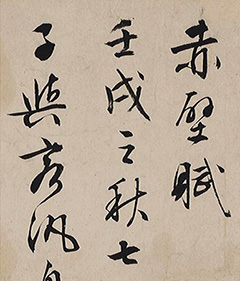 赤壁賦
壬戌之秋七
子與客汎舟